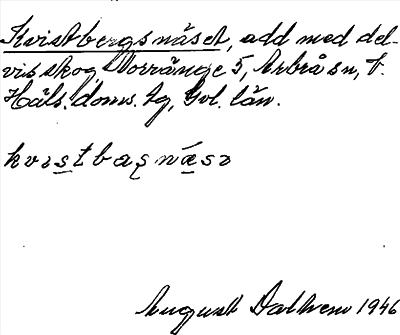 Kvistbergsnäset, add med del-
vis skog, Norränge 5, Arbrå sn, V.
Häls. doms. tg, Gvl. län.
kvɪstbaʂnæsə
August Dahlkem 1946